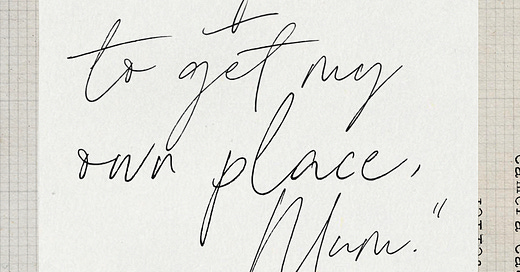 to get my
own place,
Mum."